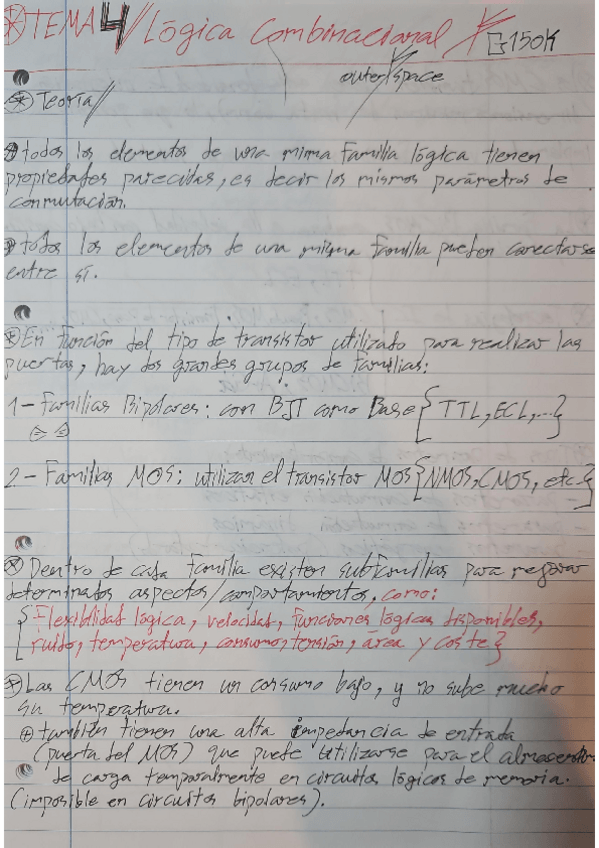 TEMA 4 // Lógica Combinacional
G150K
outer space
Teoría //
todos los elementos de una misma familia lógica tienen
propiedades parecidas, es decir los mismos parámetros de
conmutación.
todos los elementos de una misma familia pueden conectarse
entre sí.
En función del tipo de transistor utilizado para realizar las
puertas, hay dos grandes grupos de familias:
1 - Familias Bipolares: con BJT como Base {TTL, ECL, ...}
2 - Familias MOS: utilizan el transistor MOS {NMOS, CMOS, etc.}
Dentro de cada familia existen subfamilias para mejorar
determinados aspectos/comportamientos, como:
{Flexiblidad lógica, velocidad, funciones lógicas disponibles,
ruido, temperatura, consumo, tensión, área y coste}
Las CMOS tienen un consumo bajo, y no sube mucho
su temperatura.
también tienen una alta impedancia de entrada
(puerta del MOS) que puede utilizarse para el
de carga temporalmente en circuitos lógicos de memoria.
(imposible en circuitos bipolares).